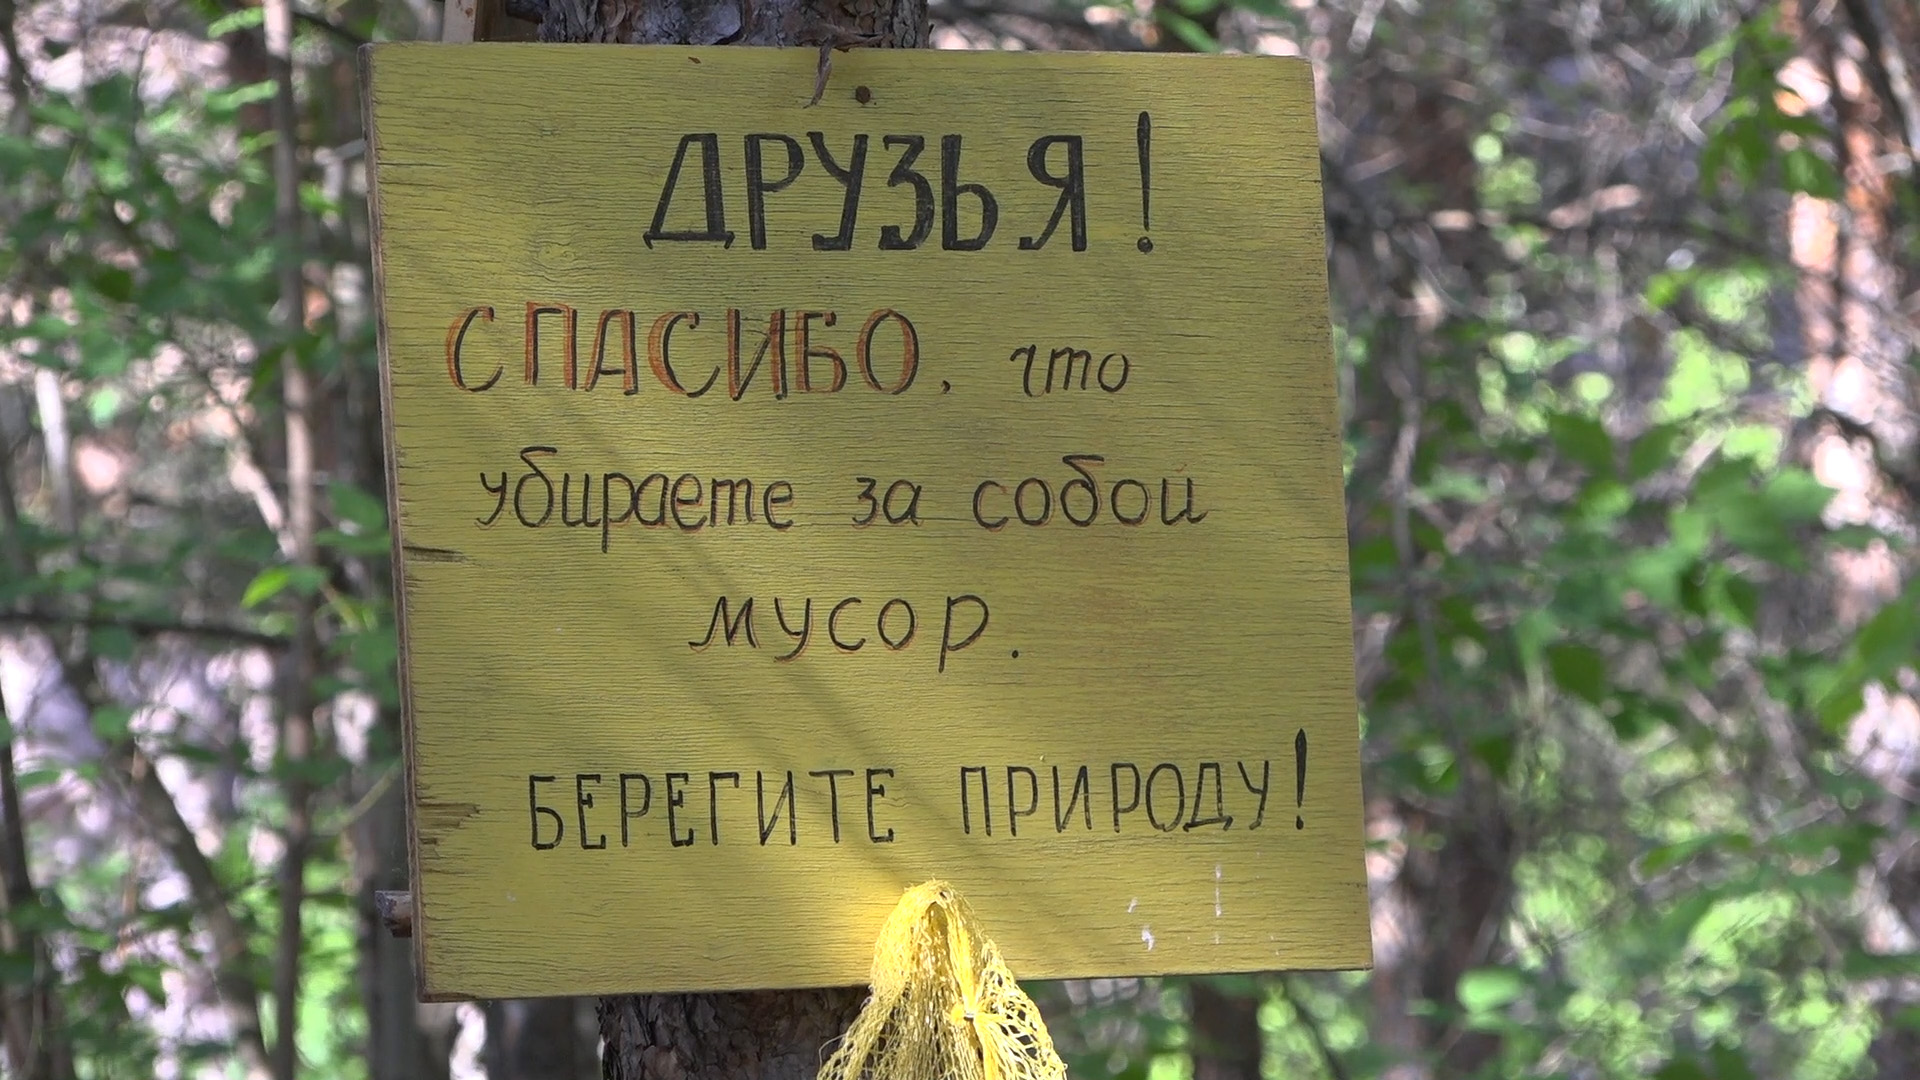 ДРУЗЬЯ!
СПАСИБО, что
убираете за собой
мусор.
БЕРЕГИТЕ ПРИРОДУ!